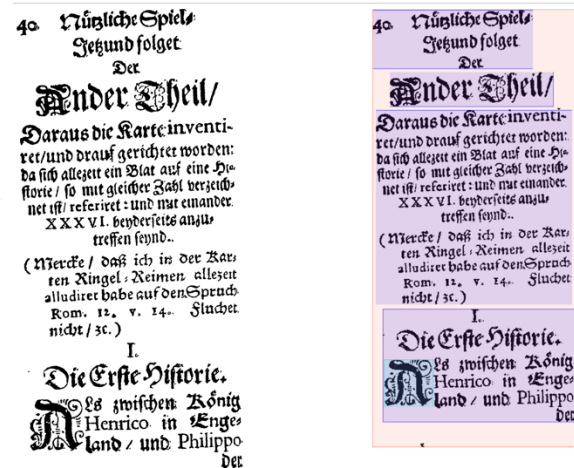 40. Nützliche Spiel-
Jetzund folget
Der
Ander Theil/
Daraus die Karte inventi-
ret/und drauf gerichtet worden:
da sich allezeit ein Blat auf eine Hi-
storie / so mit gleicher Zahl verzeich-
net ist/ referiret: und mit einander
XXXVI. beyderseits anzu-
treffen seynd..
(Mercke / daß ich in der Kar-
ten Ringel-Reimen allezeit
alludiret habe auf den Spruch
Rom. 12. v. 14. Fluchet
nicht / ꝛc.)
I.
Die Erste Historie.
ALs zwischen König
Henrico in Enge-
land / und Philippo
der
40. Nützliche Spiel-
Jetzund folget
Der
Ander Theil/
Daraus die Karte inventi-
ret/und drauf gerichtet worden:
da sich allezeit ein Blat auf eine Hi-
storie / so mit gleicher Zahl verzeich-
net ist/ referiret: und mit einander
XXXVI. beyderseits anzu-
treffen seynd..
(Mercke / daß ich in der Kar-
ten Ringel-Reimen allezeit
alludiret habe auf den Spruch
Rom. 12. v. 14. Fluchet
nicht / ꝛc.)
I.
Die Erste Historie.
ALs zwischen König
Henrico in Enge-
land / und Philippo
der